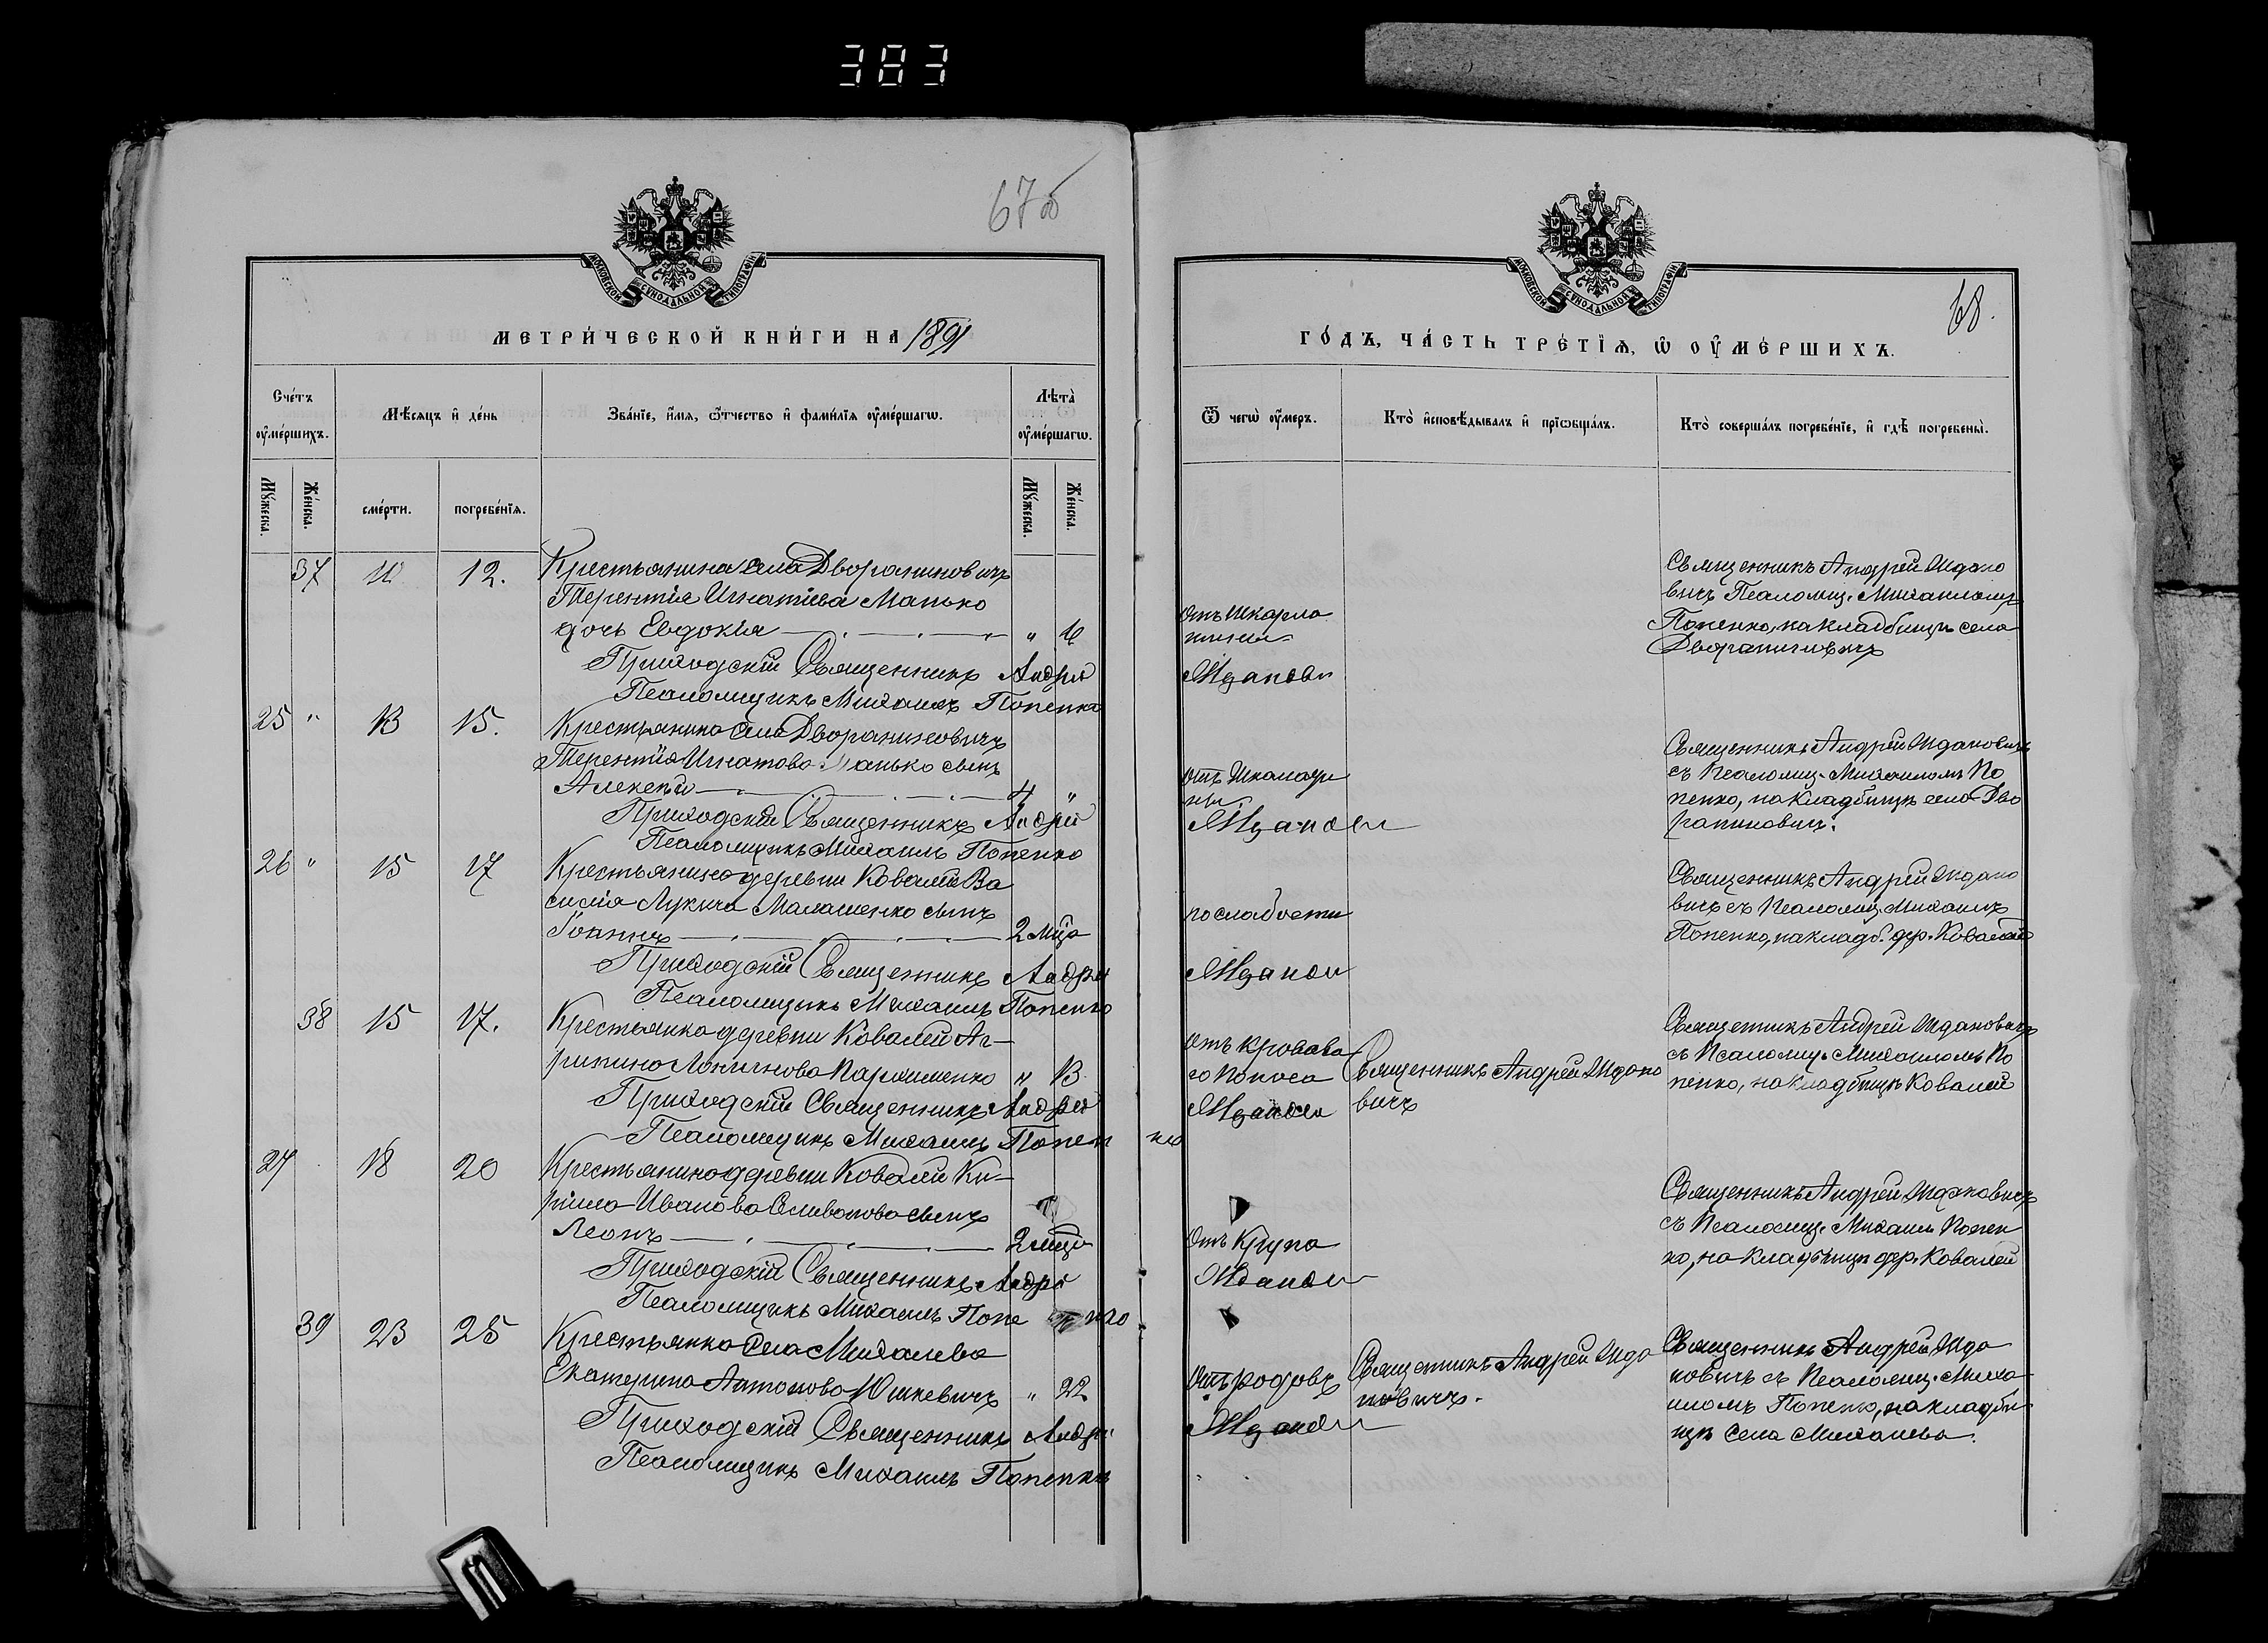 383
67об
МОСКОВСКОЙ СѴНОДАЛЬНОЙ ТИПОГРАФІИ
МЕТРИ́ЧЕСКОЙ КНИ́ГИ НА 1891
Сче́тъ ᲂу҆ме́ршихъ.
Мѣ́сяцъ и҆ де́нь
Зва́нїе, и҆́мѧ, ѻ҆́тчество и҆ фами́лїѧ ᲂу҆ме́ршагѡ.
Лѣта̀ ᲂу҆ме́ршагѡ.
Мꙋ́жеска.
Же́нска.
сме́рти.
погребе́нїѧ.
Мꙋ́жеска.
Же́нска.
37 10 12. Крестьянина села Двораниновичъ
Терентія Игнатіева Манько
дочь Евдокія " 10
Приходскій Священникъ Андрей
Псаломщикъ Михаилъ Попенко
25 " 13 15. Крестьянина села Дворениновичъ
Терентія Игнатова Манько сынъ
Алексѣй 4 "
Приходскій Священникъ Андрей
Псаломщикъ Михаилъ Попенко
26 " 15 17 Крестьянина деревни Ковалей Ва
силія Лукича Малашенко сынъ
Іоаннъ 2 мѣца
Приходскій Священникъ Андрей
Псаломщикъ Михаилъ Попенко
38 15 17. Крестьянка деревни Ковалей Аг-
рипина Логинова Пархименко " 13
Приходскій Священникъ Андрей
Псаломщикъ Михаилъ Попен ко
27 18 20 Крестьянина деревни Ковалей Ки-
рила Иванова Селиванова сынъ
Леонъ 2 мѣца
Приходскій Священникъ Андрей
Псаломщикъ Михаилъ Попе нко
39 23 25 Крестьянка села Михалева
Екатерина Антонова Юшкевичъ " 22
Приходскій Священникъ Андрей
Псаломщикъ Михаилъ Попенко
68.
МОСКОВСКОЙ СѴНОДАЛЬНОЙ ТИПОГРАФІИ
ГО́ДЪ, ЧА́СТЬ ТРЕ́ТЇѦ, Ѡ҆ ОУ҆МЕ́РШИХЪ.
Ѿ чегѡ̀ ᲂу҆́меръ.
Кто̀ и҆сповѣ́дывалъ и҆ прїѡбща́лъ.
Кто̀ соверша́лъ погребе́нїе, и҆ гдѣ̀ погребены̀.
отъ шкарла
тины
Жданови
Священникъ Андрей Ждано
вичъ Псаломщ. Михаиломъ
Попенко, на кладбищѣ села
Двораниновичъ
отъ
ны
Жданови
Священникъ Андрей Ждановичъ
съ Псаломщ. Михаиломъ По
пенко, на кладбищѣ села Дво
раниновичъ.
по слабости
Жданови
Священникъ Андрей Ждано
вичъ съ Псаломщ. Михаилъ
Попенко, на кладб. дер. Ковалей
отъ кровава
го поноса
Жданови
Священникъ Андрей Ждано
вичъ
Священникъ Андрей Ждановичъ
съ Псаломщ. Михаиломъ По
пенко, на кладбищѣ Ковалей
отъ крупа
Жданови
Священникъ Андрей Ждановичъ
съ Псаломщ. Михаилъ Попен
ко, на кладбищѣ дер. Ковалей
отъ родовъ
Жданови
Священникъ Андрей Жда
новичъ.
Священникъ Андрей Жда
новичъ съ Псаломщ. Миха
иломъ Попенко, на кладби
щѣ села Михалева.